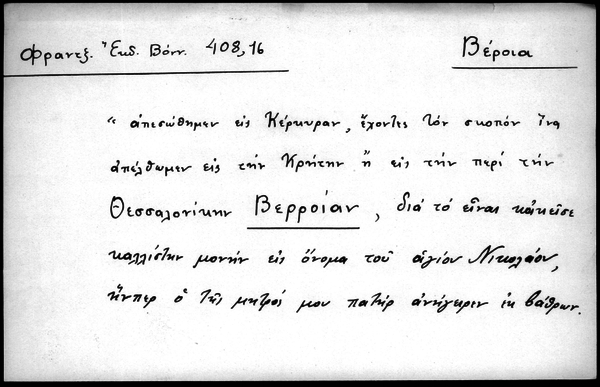 Φραντζ. Ἔκδ. Βόνν. 408,16
Βέροια
“ ἀπεσώθημεν εἰς Κέρκυραν, ἔχοντες τὸν σκοπόν ἵνα
ἀπέλθωμεν εἰς τὴν Κρήτην ἤ εἰς τὴν περί τὴν
Θεσσαλονίκην Βερροίαν, διά τό εἶναι κἀκεῖσε
καλλίστην μονήν εἰς ὄνομα τοῦ ἁγίου Νικολάου,
ἥνπερ ὁ τῆς μητρός μου πατήρ ἀνήγειρεν ἐκ βάθρων.